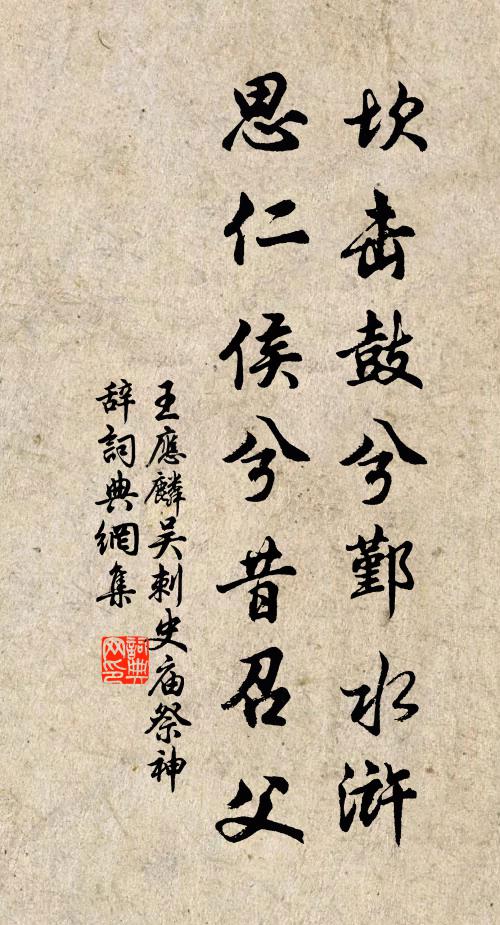 坎击鼓兮鄞水浒
思仁侯兮昔召父
王應麟吴刺史庙祭神
辞詞典網集
詞典网印